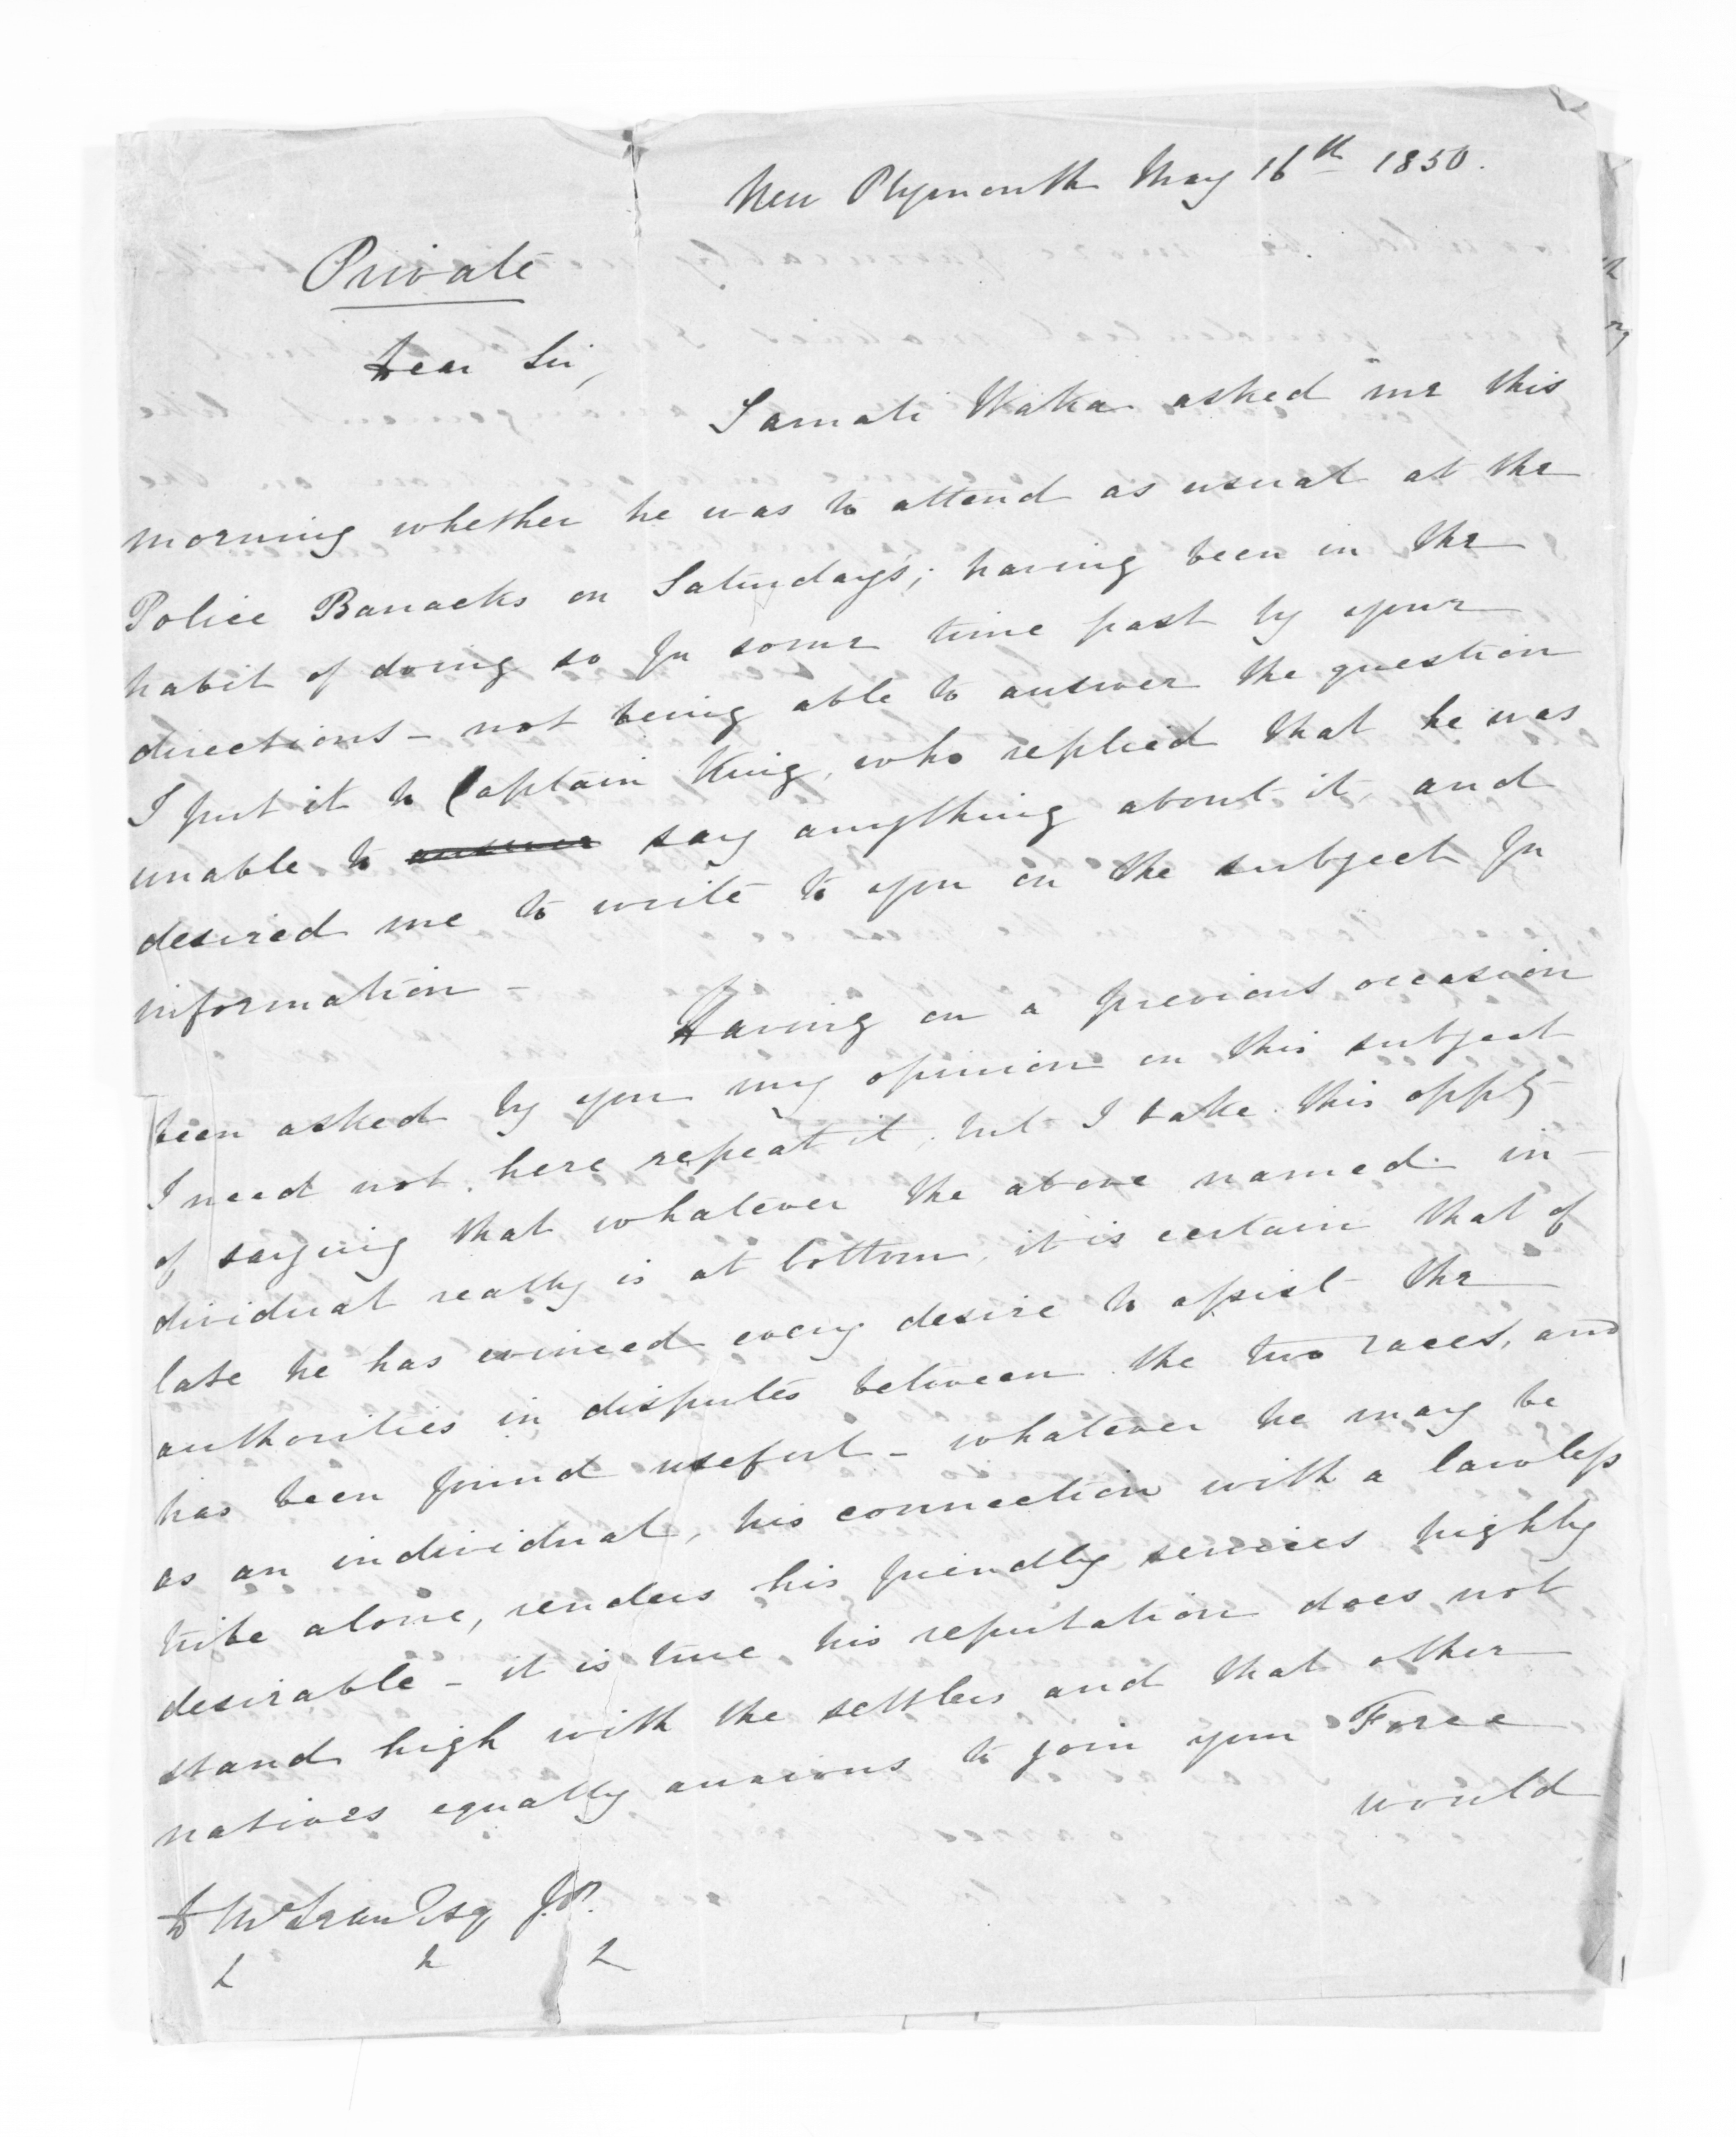 New Plymouth May 16th 1850.
Private
Dear Sir,
Tamati Waka asked me this
morning whether he was to attend as usual at the
Police Barracks on Saturdays; having been in the
habit of doing so for some time past by your
directions - not being able to answer the question
I put it to Captain King, who replied that he was
unable to answer say anything about it, and
desired me to write to you on the subject for
information -
Having on a previous occasion
been asked by you my opinion on this subject
I need not here repeat it, but I take this oppty
of saying that whatever the above named in-
dividual really is at bottom, it is certain that of
late he has evinced every desire to assist the
authorities in disputes between the two races, and
has been found useful - whatever he may be
as an individual, his connection with a lawless
tribe alone, renders his friendly services highly
desirable - it is true his reputation does not
stand high with the settlers and that other
natives equally anxious to join your Force
would
D McLean Esq J.P.